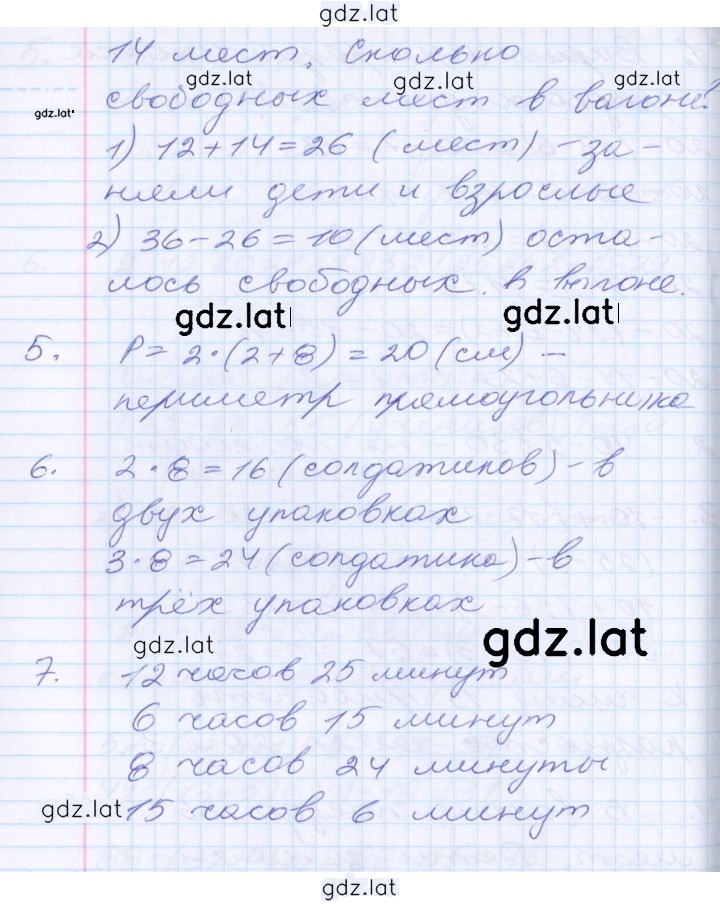 gdz.lat
14 мест. Сколько
gdz.lat gdz.lat gdz.lat
свободных мест в вагоне?
gdz.lat
1) 12+14=26 (мест) - за-
няли дети и взрослые
2) 36-26=10 (мест) оста-
лось свободных в вагоне.
gdz.lat gdz.lat
5. P= 2·(2+8) = 20 (см) –
периметр прямоугольника
6. 2·8=16 (солдатиков) - в
двух упаковках
3·8=24 (солдатика) - в
трёх упаковках
gdz.lat gdz.lat
7. 12 часов 25 минут
6 часов 15 минут
8 часов 24 минуты
gdz.lat 15 часов 6 минут
gdz.lat